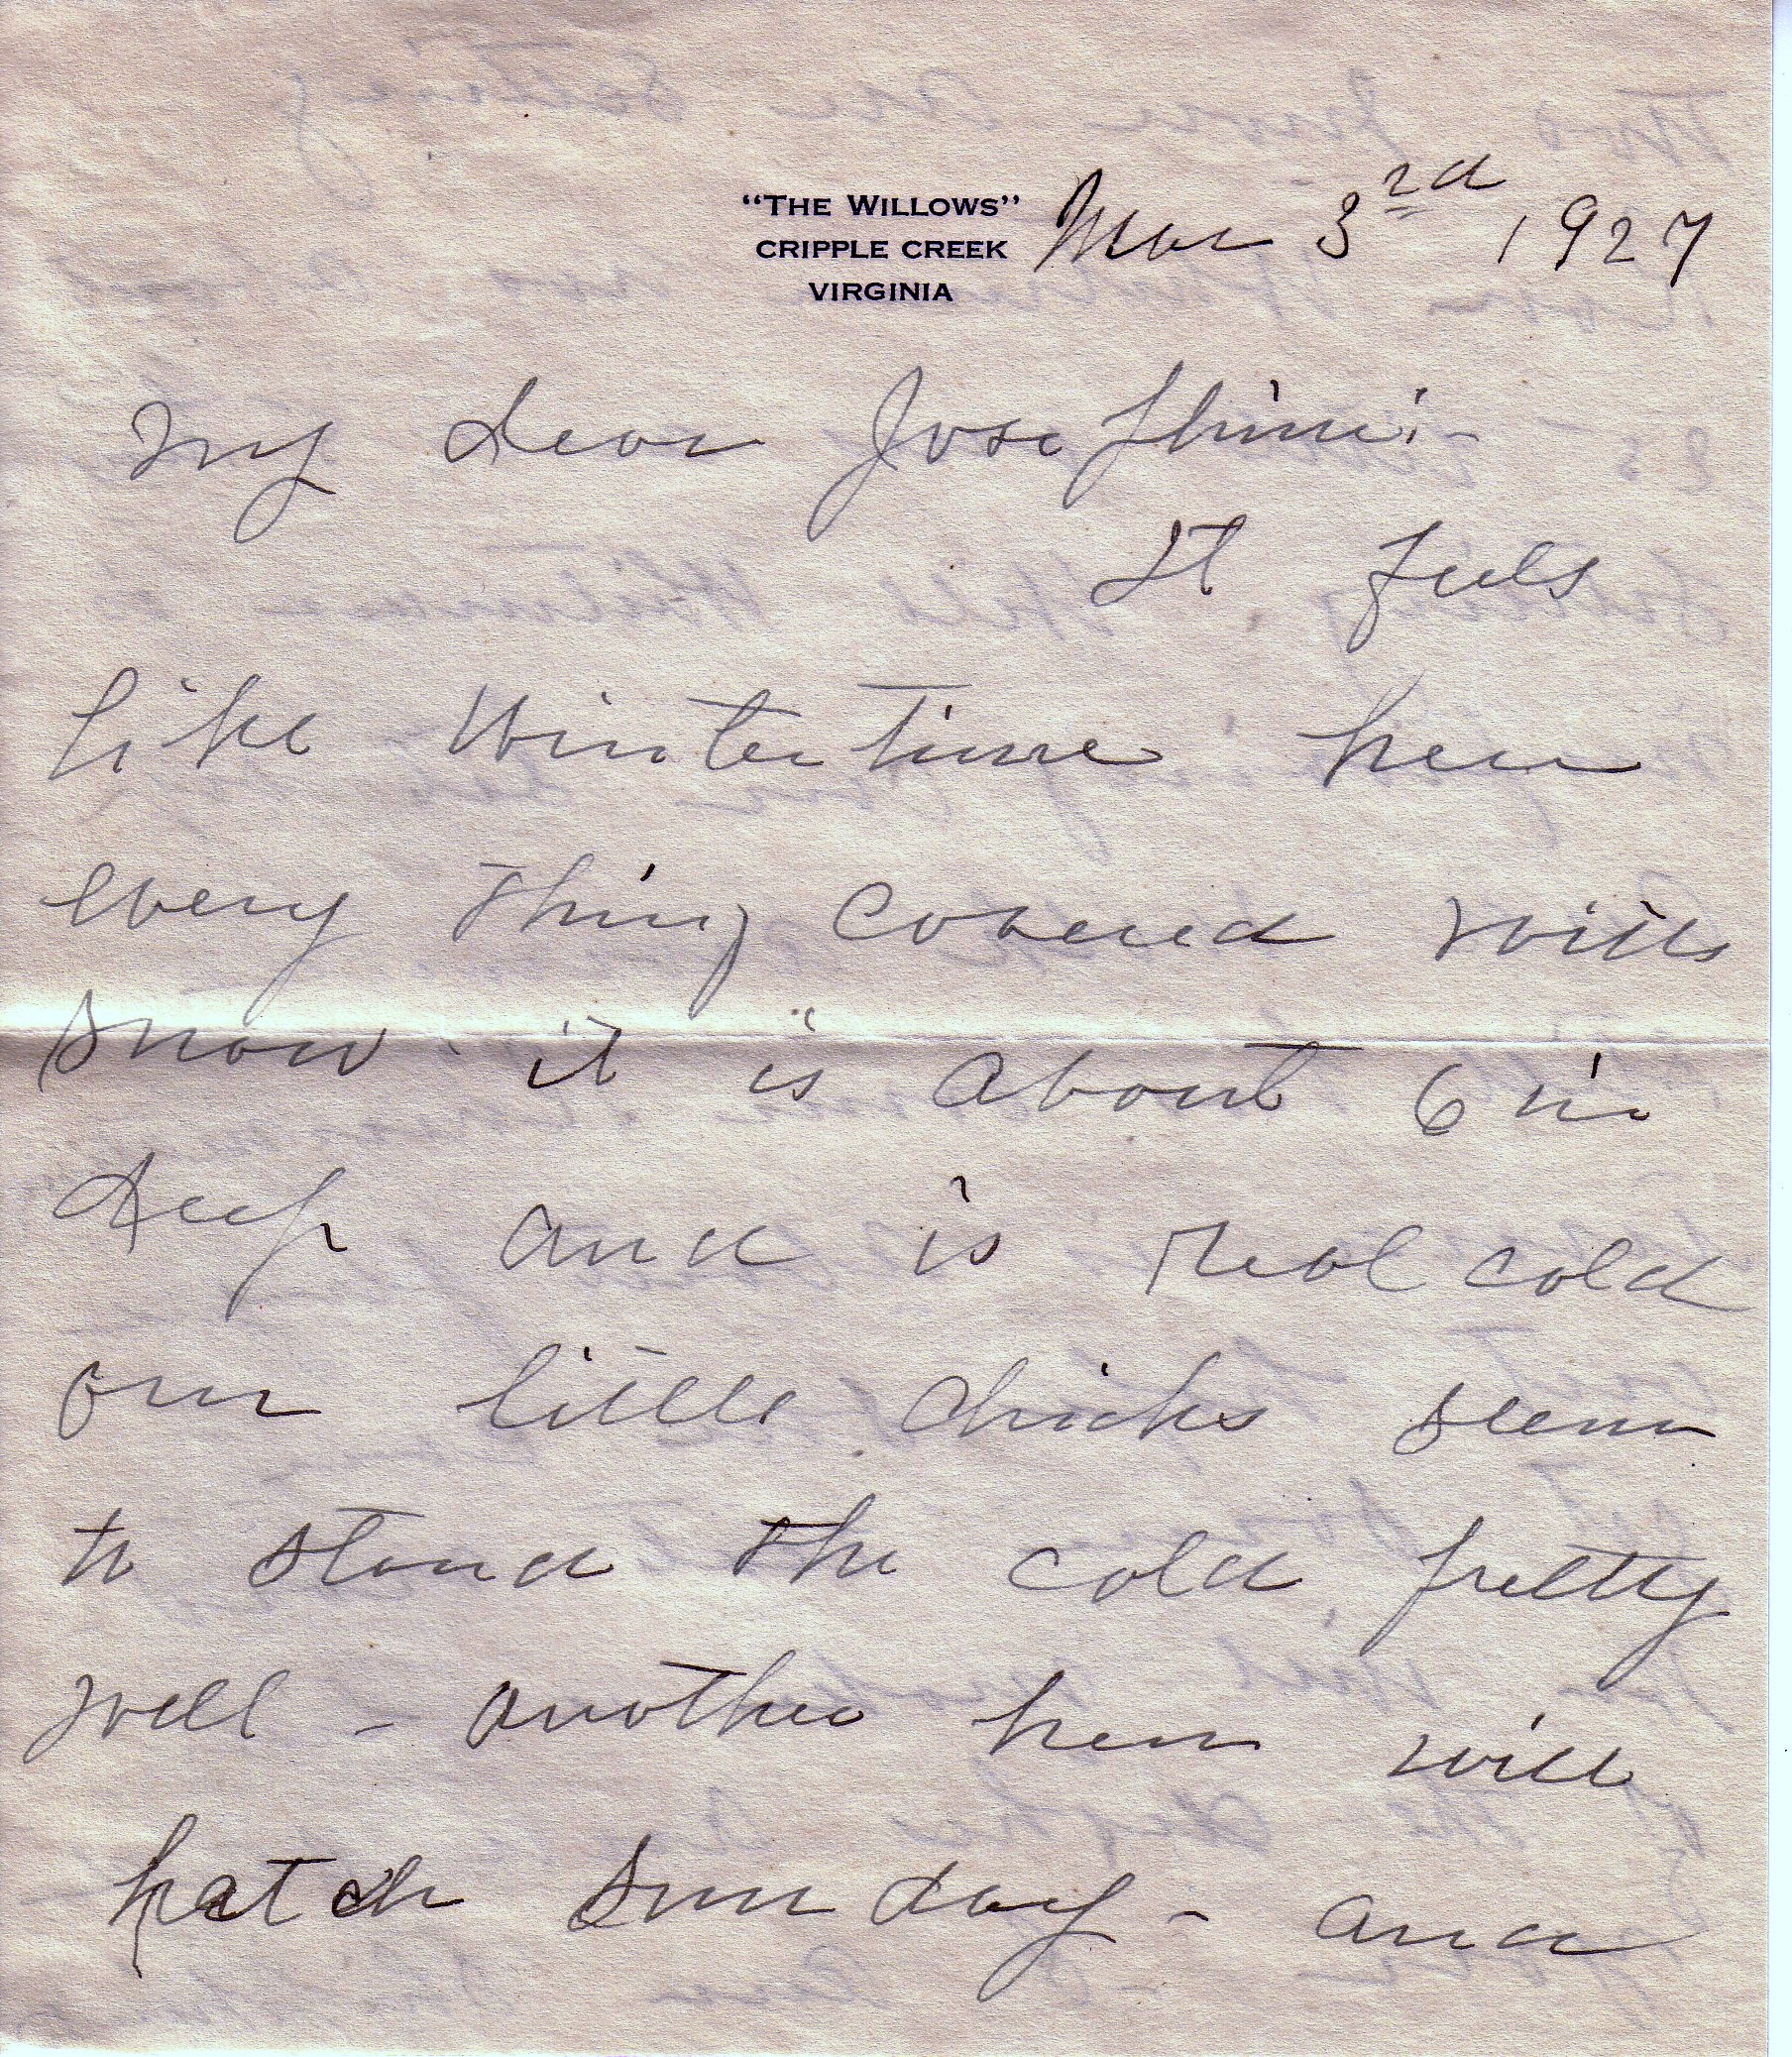 "THE WILLOWS"
CRIPPLE CREEK
VIRGINIA
Mar 3rd 1927
My dear Josephine:-
It feels
like Winter time here
every thing covered with
snow. it is about 6 in
deep and is real cold
our little chicks seem
to stand the cold pretty
well - another hen will
hatch Sunday - and